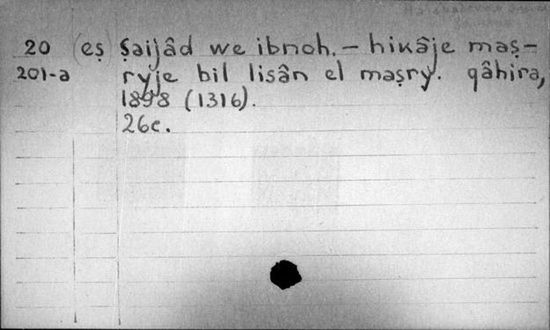 20 (eṣ Ṣaijâd we ibnoh. – hikâje maṣ-
201-a ryje bil lisân el maṣry. qâhira,
1898 (1316).
26c.